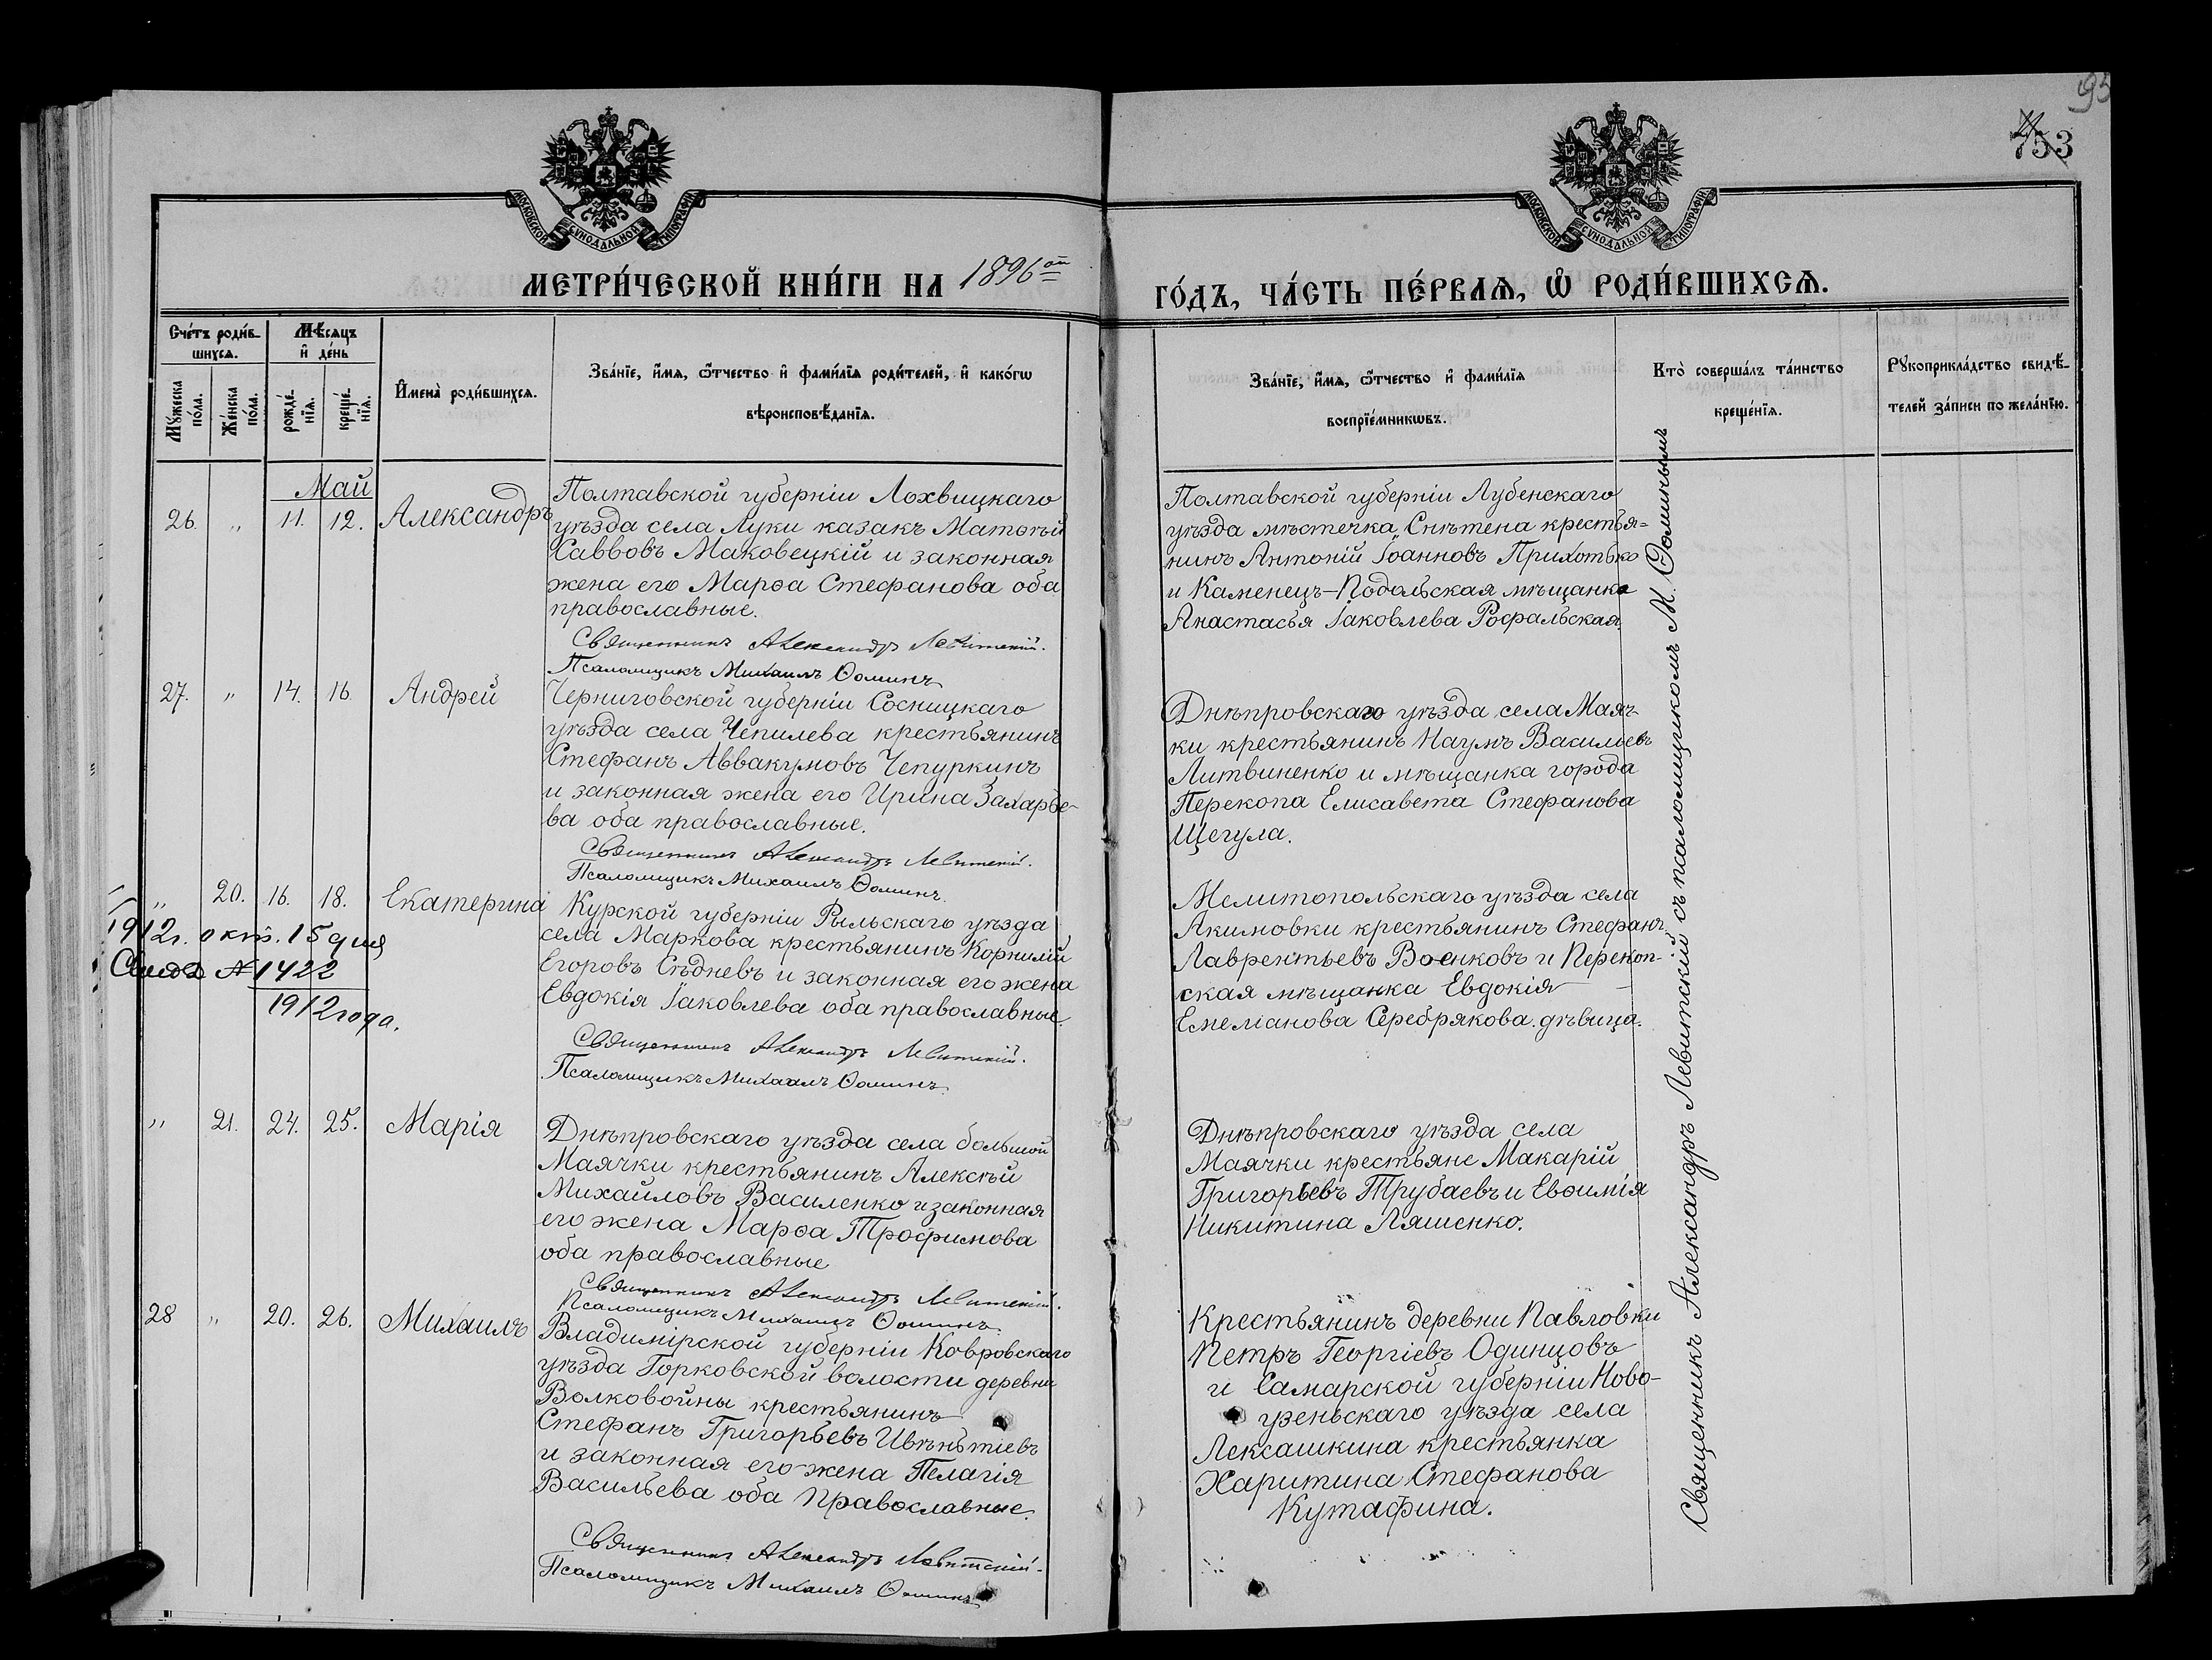 95
753
МОСКОВСКОЙ СѴНОДАЛЬНОЙ ТИПОГРАФІИ
МОСКОВСКОЙ СѴНОДАЛЬНОЙ ТИПОГРАФІИ
МЕТРИ́ЧЕСКОЙ КНИ́ГИ НА 1896ой
ГО́ДЪ, ЧА́СТЬ ПЕ́РВАЯ, Ѡ РОДИ́ВШИХСЯ.
Сче́тъ роди́в-
шихся.
Мѣ́сяцъ
и де́нь
Мꙋ́жеска
по́ла.
Же́нска
по́ла.
рожде́-
нїя.
креще́-
нїя.
Имена̀ роди́вшихся.
Зва́нїе, и́мя, ѻ҆́тчество и фами́лїя роди́телей, и како́гѡ
вѣроисповѣ́данїя.
Зва́нїе, и́мя, ѻ҆́тчество и фами́лїя
воспрїе́мникѡвъ.
Кто̀ соверша́лъ та́инство
креще́нїя.
Рꙋкоприкла́дство свидѣ́-
телей за́писи по жела́нїю.
Май
26. " 11. 12. Александръ
Полтавской губерніи Лохвицкаго
уѣзда села Луки казакъ Матѳѣй
Саввовъ Маковецкій и законная
жена его Марѳа Стефанова оба
православные.
Священникъ Александръ Левитскій.
Псаломщикъ Михаилъ Ѳоминъ
Полтавской губерніи Лубенскаго
уѣзда мѣстечка Снѣтена крестья=
нинъ Антоній Іоанновъ Прихотько
и Каменецъ-Подольская мѣщанка
Анастасья Іаковлева Росфальская.
27. " 14. 16. Андрей
Черниговской губерніи Сосницкаго
уѣзда села Чепилева крестьянинъ
Стефанъ Аввакумовъ Чепуркинъ
и законная жена его Ирина Захарье-
ва оба православные.
Священникъ Александръ Левитскій.
Псаломщикъ Михаилъ Ѳоминъ.
Днѣпровскаго уѣзда села Маяч-
ки крестьянинъ Наумъ Васильевъ
Литвиненко и мѣщанка города
Перекопа Елисавета Стефанова
Щегула.
" 20. 16. 18. Екатерина
1912г. окт. 15 дня
№ 1422
1912 года.
Курской губерніи Рыльскаго уѣзда
села Маркова крестьянинъ Корнилій
Егоровъ Сѣдневъ и законная его жена
Евдокія Іаковлева оба православные.
Священникъ Александръ Левитскій.
Псаломщикъ Михаилъ Ѳоминъ.
Мелитопольскаго уѣзда села
Акимовки крестьянинъ Стефанъ
Лаврентьевъ Военковъ и Перекоп-
ская мѣщанка Евдокія
Емеліанова Серебрякова. дѣвица.
" 21. 24. 25. Марія
Днѣпровскаго уѣзда села большой
Маячки крестьянинъ Алексѣй
Михайловъ Василенко и законная
его жена Марѳа Трофимова
оба православные
Священникъ Александръ Левитскій.
Псаломщикъ Михаилъ Ѳоминъ.
Днѣпровскаго уѣзда села
Маячки крестьяне Макарій
Григорьевъ Трубаевъ и Евѳимія
Никитина Ляшенко.
28 " 20. 26. Михаилъ
Владимірской губерніи Ковровскаго
уѣзда Горковской волости деревни
Волковойны крестьянинъ
Стефанъ Григорьевъ
и законная его жена Пелагія
Васильева оба Православные.
Священникъ Александръ Левитскій.
Псаломщикъ Михаилъ Ѳоминъ
Крестьянинъ деревни Павловки
Петръ Георгіевъ Одинцовъ
и Самарской губерніи Ново-
узеньскаго уѣзда села
Лексашкина крестьянка
Харитина Стефанова
Кутафина.
Священникъ Александръ Левитскій съ псаломщикомъ М. Ѳоминымъ